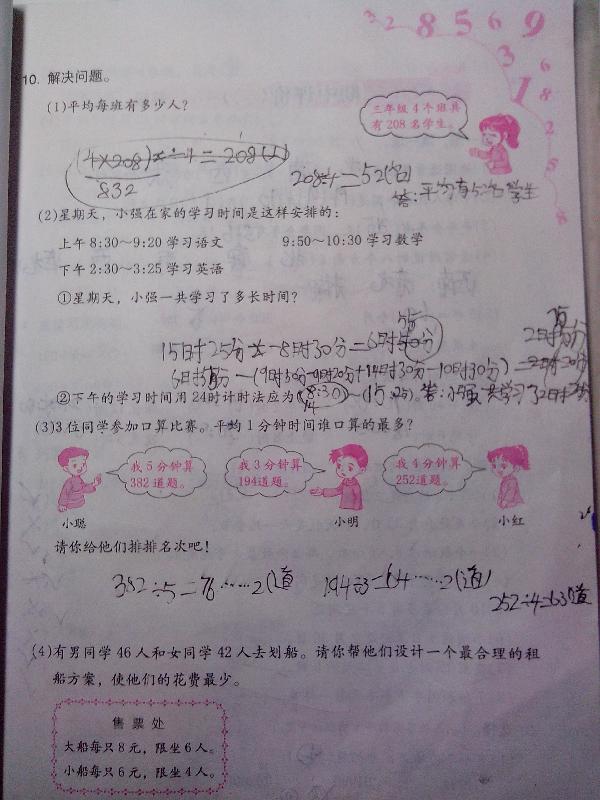 3 2 8 5 6 9
3 6
1 8
2
5
5
8
10. 解决问题。
(1)平均每班有多少人?
三年级4个班共
有208名学生。
(4×208)÷4=208(人)
832
208÷4=52(名)
答:平均有52名学生
(2)星期天,小强在家的学习时间是这样安排的:
上午 8:30～9:20 学习语文 9:50～10:30 学习数学
下午 2:30～3:25 学习英语
①星期天,小强一共学习了多长时间?
15时25分-8时30分=6时
②下午的学习时间用24时计时法应为(
(3)3位同学参加口算比赛。平均1分钟时间谁口算的最多?
我5分钟算
382道题。
我3分钟算
194道题。
我4分钟算
252道题。
小聪 小明 小红
请你给他们排排名次吧!
382÷5=76……2(道 194÷3=64……2(道)
252÷4=63(道
(4)有男同学46人和女同学42人去划船。请你帮他们设计一个最合理的租
船方案,使他们的花费最少。
售票处
大船每只8元,限坐6人。
小船每只6元,限坐4人。